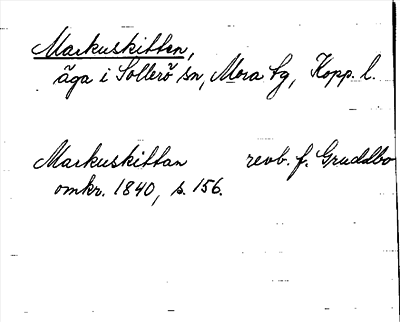 Markuskitten,
äga i Sollerö sn, Mora tg, Kopp. l.
Markuskittan revb. f. Gruddbo
omkr. 1840, s. 156.